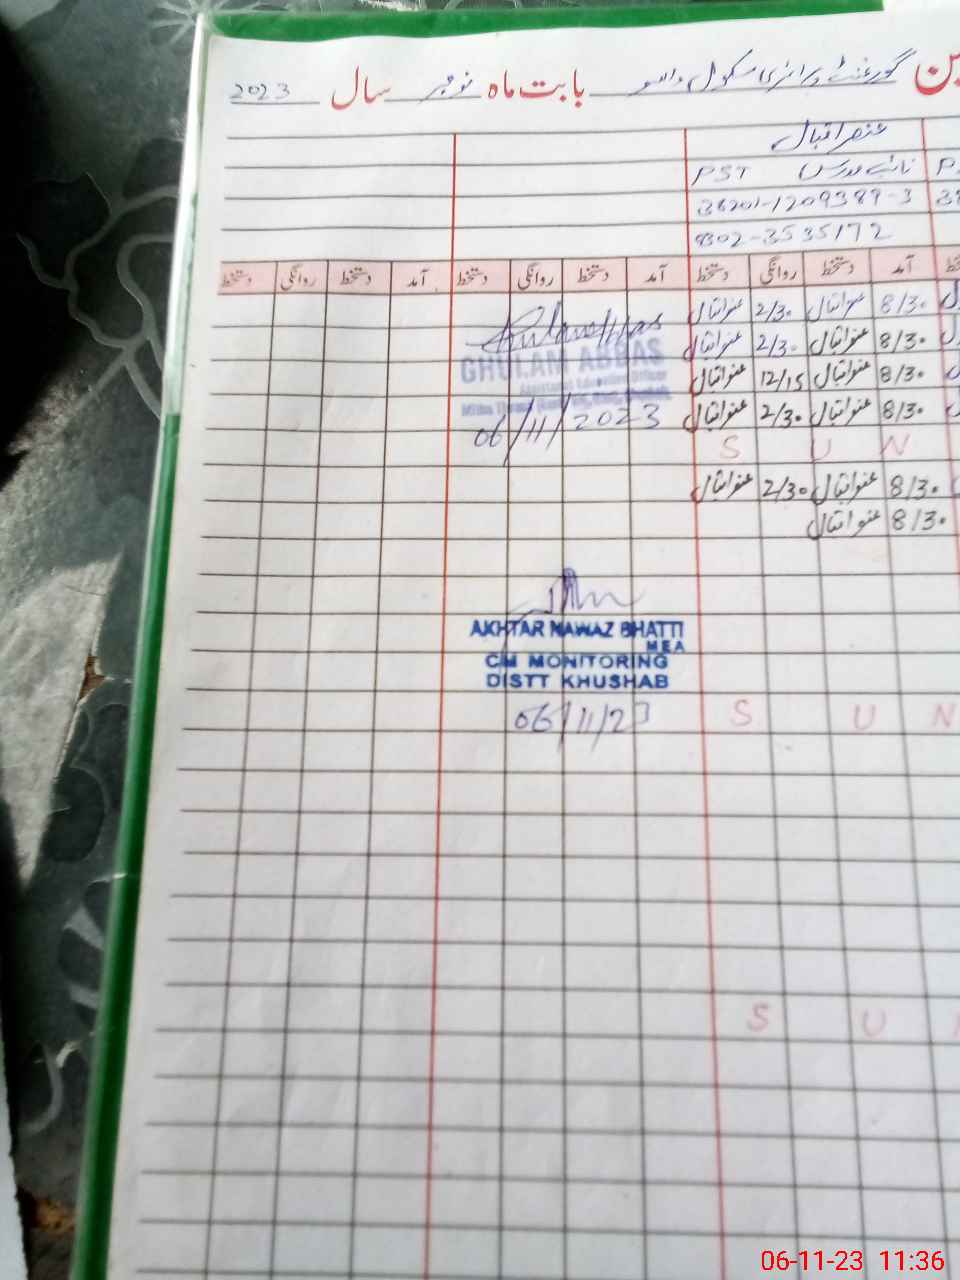 گورنمنٹ پرائمری سکول والسو بابت ماہ نومبر سال 2023
عنصر اقبال
نائب مدرس PST
38201-1209389-3
0302-3535172
آمد دستخط روانگی دستخط آمد دستخط روانگی دستخط آمد دستخط روانگی دستخط
8/30 عنصر اقبال 2/30 عنصر اقبال
8/30 عنصر اقبال 2/30 عنصر اقبال
8/30 عنصر اقبال 12/15 عنصر اقبال
8/30 عنصر اقبال 2/30 عنصر اقبال
S U N
8/30 عنصر اقبال 2/30 عنصر اقبال
8/30 عنصر اقبال
GHULAM ABBAS
Assistant Education Officer
06/11/2023
AKHTAR NAWAZ BHATTI
MEA
CM MONITORING
DISTT KHUSHAB
06/11/23
S U N
S U
06-11-23 11:36